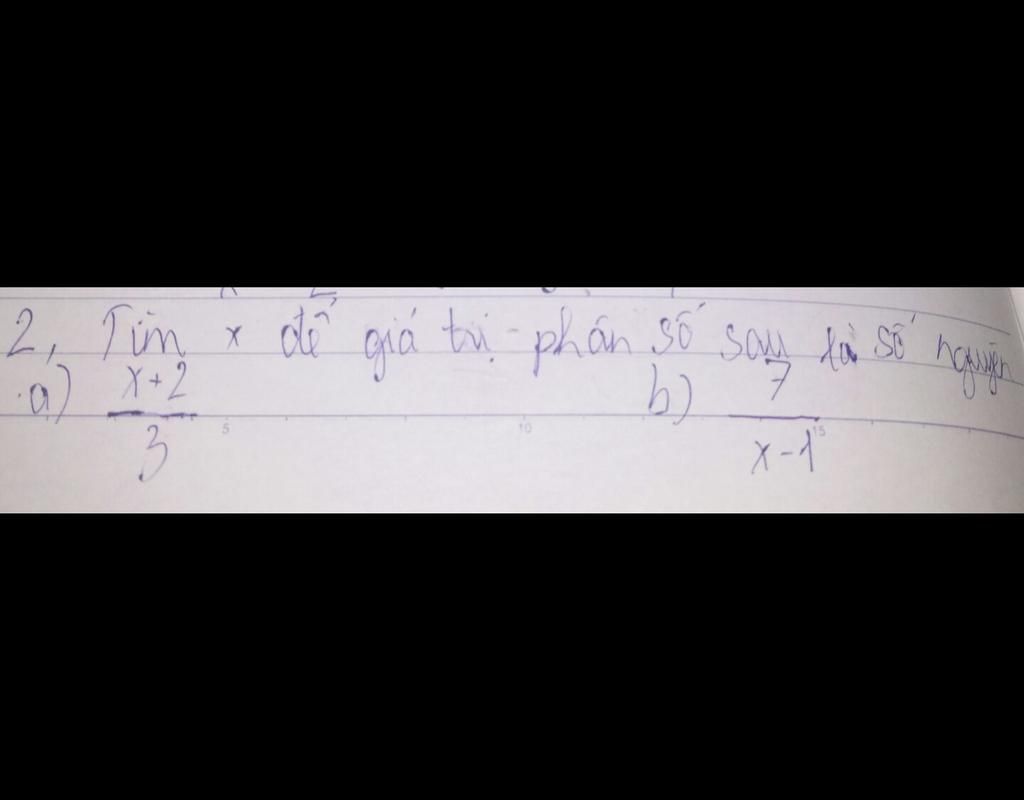 2, Tìm x để giá trị phân số sau là số nguyên
a) x+2/3 b) 7/x-1
5 10 15